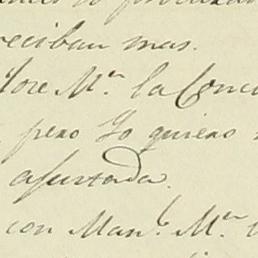 reciban mas.
Jose M.ª la Conc
pero Yo quiero
afustada.
con Man.l M.ª